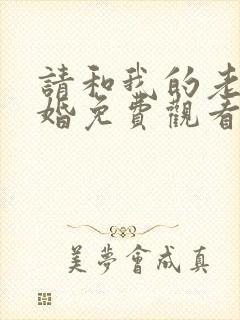 請和我的老
婚免費觀看
美夢會成真